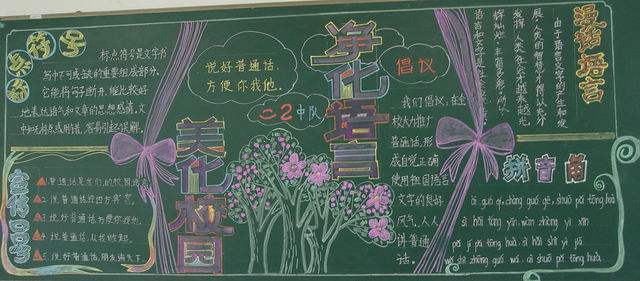 标点符号
标点符号是文字书
写中不可或缺的重要组成部分。
它能将句子断开,能比较好
地表达语气和文章的思想感情。文
中如无标点或用错,容易引起误解。
宣传口号
1.普通话是我们的校园语言
2.说普通话迎四方宾客。
3.说好普通话方便你我他。
4.说普通话,从我做起。
5.说好普通话,朋友遍天下
说好普通话,
方便你我他。
二2中队
美化校园
净化语言
倡议
我们倡议,在全
校大力推广
普通话,形
成自觉正确
使用祖国语言
文字的良好
风气。人人
讲普通
话。
漫话语言
由于语言文字的产生和发
展,人类的智慧才得以充分
发挥,人类的
拼音角
ài guó qí, chàng guó gē, shuō pǔ tōng huà
sì hǎi tóng yīn wàn zhòng yì xīn
pǔ jí pǔ tōng huà, sì hǎi shì yì jiā
zhōng guó wá, ài shuō pǔ tōng huà